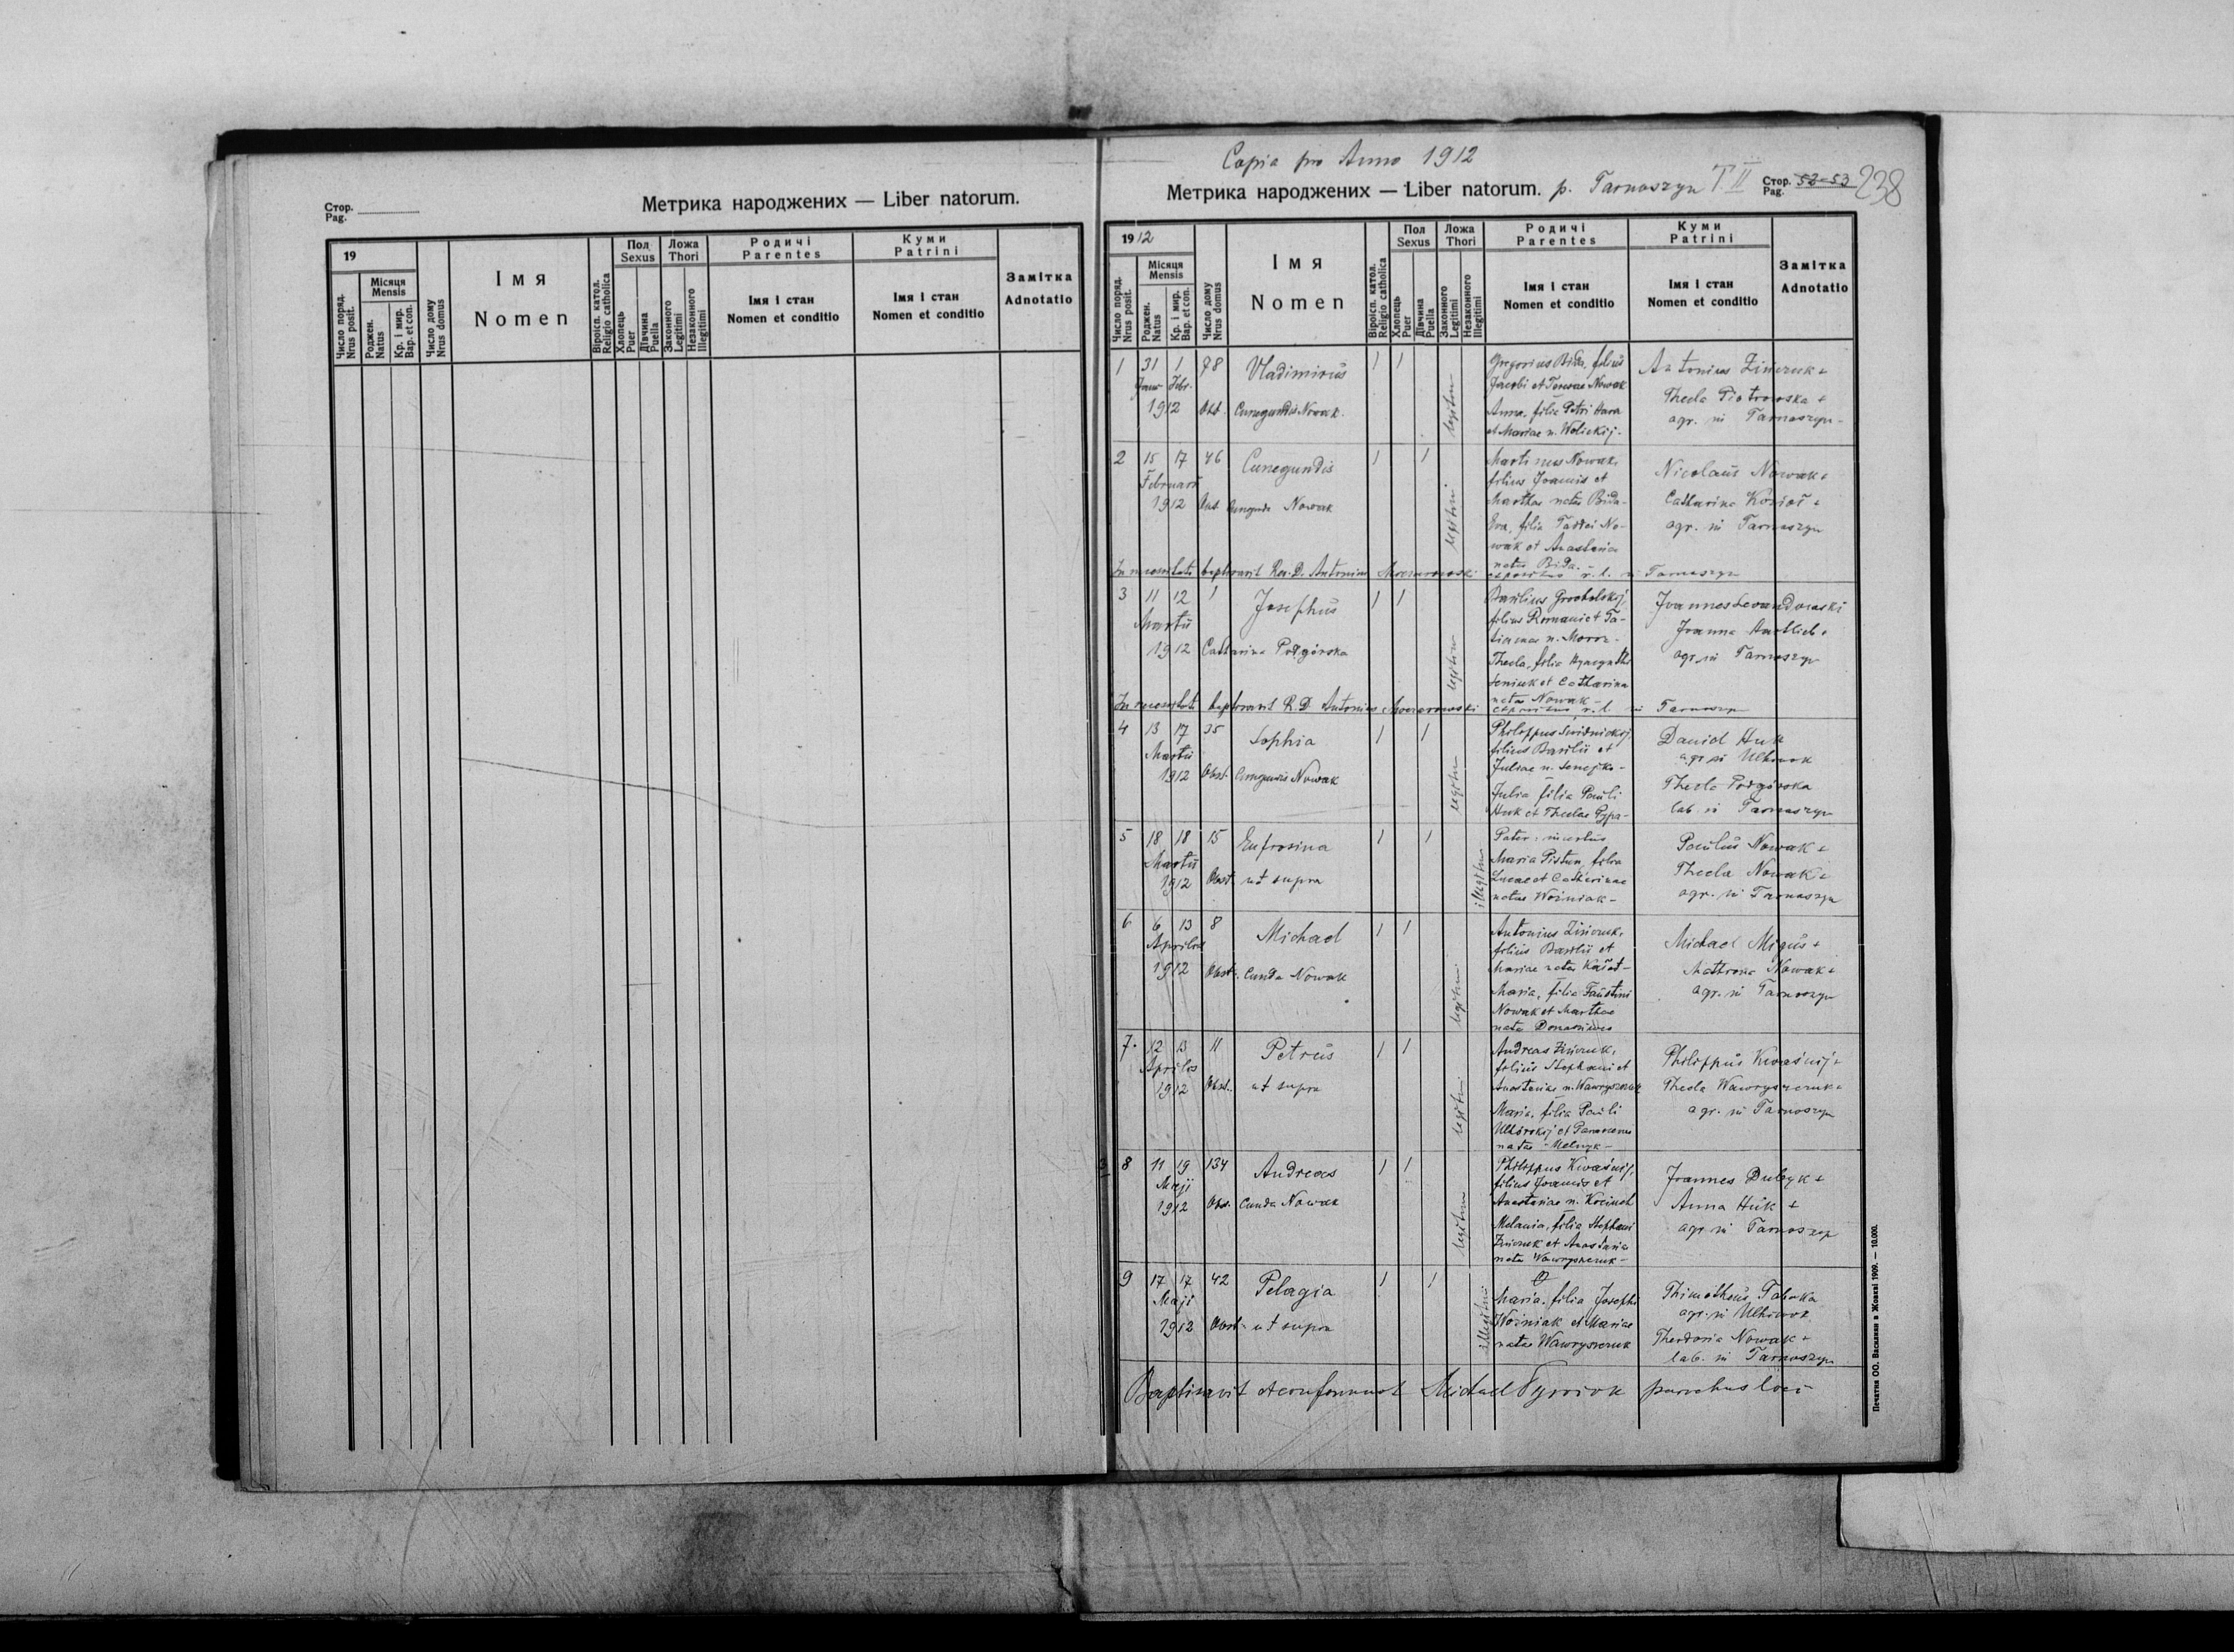 Стор.
Pag.
Метрика народжених — Liber natorum.
19
Число поряд.
Nrus posit.
Місяця
Mensis
Роджен.
Natus
Кр. і мир.
Bap. et con.
Число дому
Nrus domus
Імя
Nomen
Віроісп. катол.
Religio catholica
Пол
Sexus
Хлопець
Puer
Дівчина
Puella
Ложа
Thori
Законного
Legitimi
Незаконного
Illegitimi
Родичі
Parentes
Імя і стан
Nomen et conditio
Куми
Patrini
Імя і стан
Nomen et conditio
Замітка
Adnotatio
Copia pro Anno 1912
Метрика народжених — Liber natorum. p. Tarnoszyn T. II
Стор.
Pag.
52-53
238
1912
Число поряд.
Nrus posit.
Місяця
Mensis
Роджен.
Natus
Кр. і мир.
Bap. et con.
Число дому
Nrus domus
Імя
Nomen
Віроісп. катол.
Religio catholica
Пол
Sexus
Хлопець
Puer
Дівчина
Puella
Ложа
Thori
Законного
Legitimi
Незаконного
Illegitimi
Родичі
Parentes
Імя і стан
Nomen et conditio
Куми
Patrini
Імя і стан
Nomen et conditio
Замітка
Adnotatio
1 31 1 78 Vladimirus 1 1
Janu Febr.
1912 Obst. Cunegundis Nowak
legitimi
Gregorius Bida, filius
Jacobi et Teresae Nowak
Anna, filia Petri Hara
et Mariae n. Welickij-
Antonius Zinczuk +
Thecla Piotrowska +
agr. in Tarnoszyn-
2 15 17 46 Cunegundis 1 1
Februarii
1912 Obst. Cunegunda Nowak
legitimi
Martinus Nowak,
filius Joannis et
Marthae natae Bida-
Eva, filia Taddei No-
wak et Anastasiae
natae Bida.
Nicolaus Nowak +
Catharina Kozioł +
agr. in Tarnoszyn
In necessitate baptizavit Rev. D. Antonius expositus r. l. in Tarnoszyn
3 11 12 1 Josephus 1 1
Martii
1912 Catharina Podgórska
legitimi
Basilius Grocholskij,
filius Romani et Ta-
tianae n. Moroz-
Thecla, filia Hyacynthi
Seniuk et Catharina
nata Nowak-
Joannes Lewandowski
Joanna
agr. in Tarnoszyn
In necessitate baptizavit R. D. Antonius expositus r. l. in Tarnoszyn
4 13 17 35 Sophia 1 1
Martii
1912 Obst. Cunegundis Nowak
legitimi
Philippus Swidnickij
filius Basilii et
Juliae n. Senejko-
Julia filia Pauli
Huk et Theclae Pypa-
Daniel Huk
agr. in Ulhowek
Thecla Podgórska
lab. in Tarnoszyn
5 18 18 15 Eufrosina 1 1
Martii
1912 Obst. ut supra
illegitimi
Pater: incertus
Maria Pistun, filia
Lucae et Catharinae
natae Woźniak-
Paulus Nowak +
Thecla Nowak +
agr. in Tarnoszyn
6 6 13 8 Michael 1 1
Aprilis
1912 Obst. Cunda Nowak
legitimi
Antonius Zinczuk,
filius Basilii et
Mariae natae
Maria, filia Faustini
Nowak et Marthae
nata
Michael Migus +
Mathrona Nowak +
agr. in Tarnoszyn
7. 12 13 11 Petrus 1 1
Aprilis
1912 Obst. ut supra
legitimi
Andreas Zinczuk,
filius Stephani et
Anastasiae n. Wawryszczuk
Maria, filia Pauli
Ulhórskij et Parascenae
natae Melnyk-
Philippus Kwaśnij +
Thecla Wawryszczuk +
agr. in Tarnoszyn
8 11 19 134 Andreas 1 1
Maji
1912 Obst. Cunda Nowak
legitimi
Philippus Kwaśnij,
filius Joannis et
Anastasiae n.
Melania, filia Stephani
Zinczuk et Anastasia
nata Wawryszczuk-
Joannes Dubyk +
Anna Huk +
agr. in Tarnoszyn
9 17 17 42 Pelagia 1 1
Maji
1912 Obst. ut supra
illegitimi
Maria, filia Josephi
Woźniak et Mariae
natae Wawryszczuk
Thimotheus Tabaka
agr. in Ulhowek
Theodosia Nowak +
lab. in Tarnoszyn
Baptisavit et confirmavit Michael parochus loci
Печатня ОО. Василиян в Жовкві 1909. — 10.000.